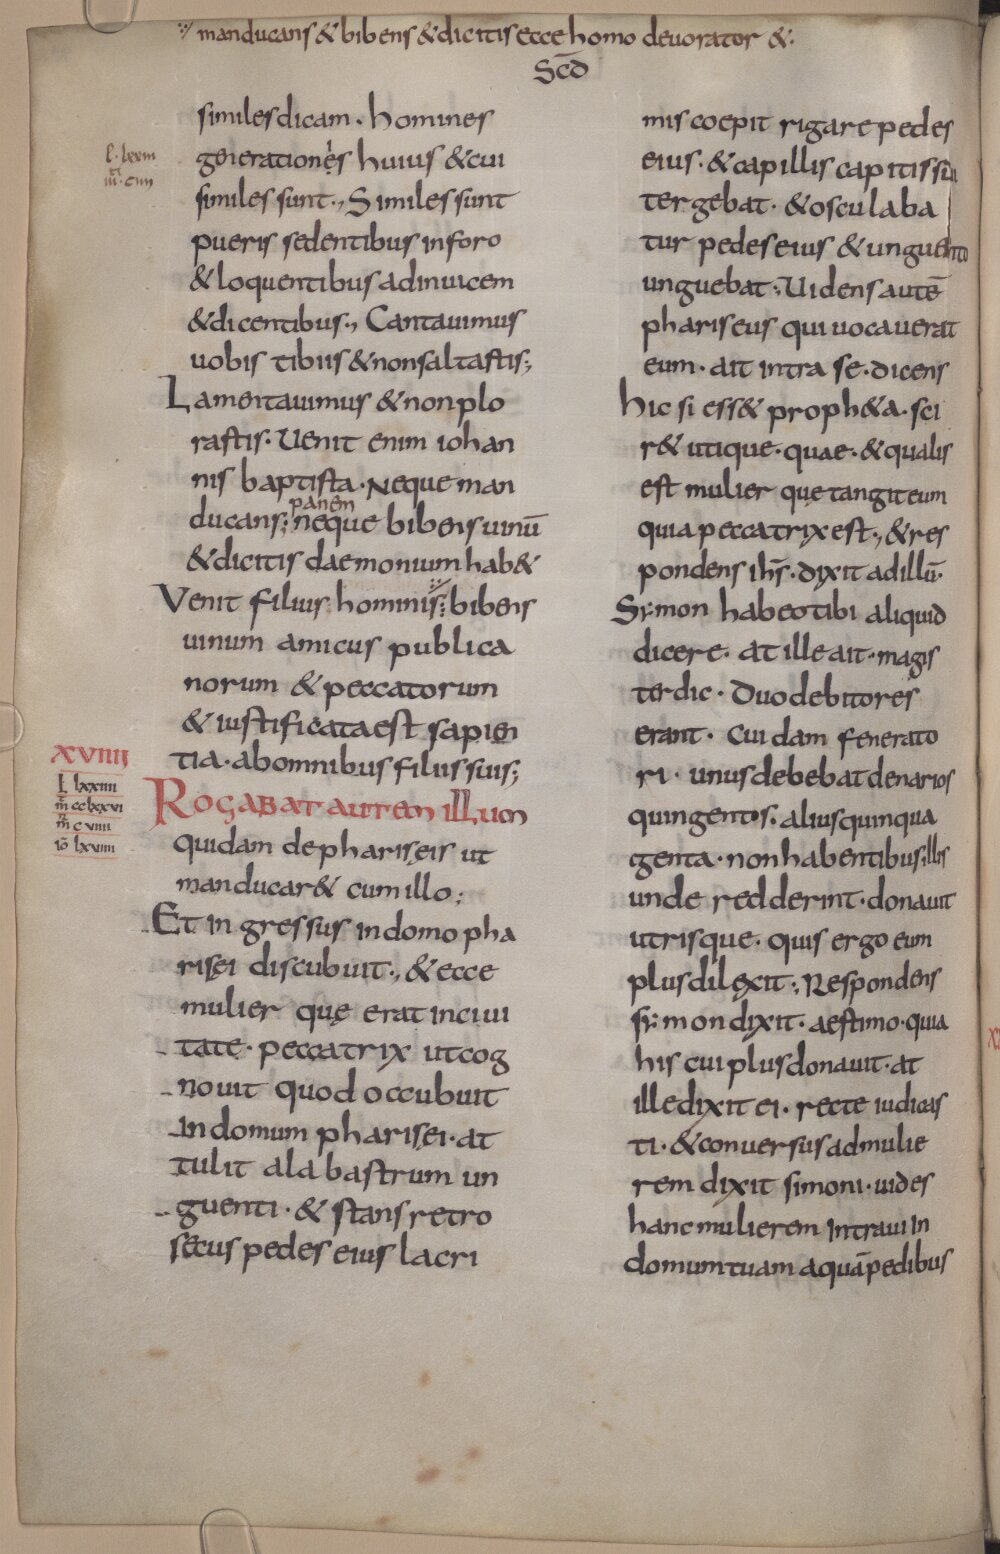 manducans & bibens & dicitis ecce homo devorator &.
Scd̄
similes dicam . homines
generationes huius & cui
similes sunt ., Similes sunt
pueris sedentibus inforo
& loquentibus adinuicem
& dicentibus ., Cantauimus
uobis tibiis & nonsaltastis ;
Lamentauimus & nonplo
rastis . Uenit enim iohan
nis baptista . Neque man
panem
ducans ; neque bibens uinū
& dicitis daemonium hab&
Venit filius hominis ; bibens
uinum amicus publica
norum & peccatorum
& iustificata est sapien
tia . abomnibus filiis suis ;
Rogabat autem illum
quidam depharisęis ut
manducar& cum illo ;
Et ingressus indomo pha
risęi discubuit ., & ecce
mulier quę erat inciui
tate . peccatrix utcog
nouit quod occubuit
in domum pharisęi . at
tulit alabastrum un
guenti . & stans retro
secus pedes eius lacri
l . lxxiii
m̄ . ciiii
XVIIII
L lxxiiii
m̄ cclxxvi
m̄ c viiii
iō lxviiii
mis coepit rigare pedes
eius . & capillis capitis sui
tergebat . & osculaba
tur pedes eius & unguento
unguebat ., Uidens autē
phariseus qui uocauerat
eum . ait intra se . dicens
hic si ess& proph&a . sci
r& utique . quae . & qualis
est mulier quę tangit eum
quia peccatrix est ., & res
pondens ih̄s . dixit ad illū .
Symon habeo tibi aliquid
dicere . at ille ait . magis
ter dic . Duo debitores
erant . cuidam fenerato
ri . unus debebat denarios
quingentos . alius quinqua
genta . non habentibus illis
unde redderint . donauit
utrisque . quis ergo eum
plus dilexit ., Respondens
symon dixit . aestimo . quia
his cui plus donauit . at
ille dixit ei . recte iudicas
ti . & conuersus ad mulie
rem dixit simoni . uides
hanc mulierem intraui in
domum tuam aquā pedibus